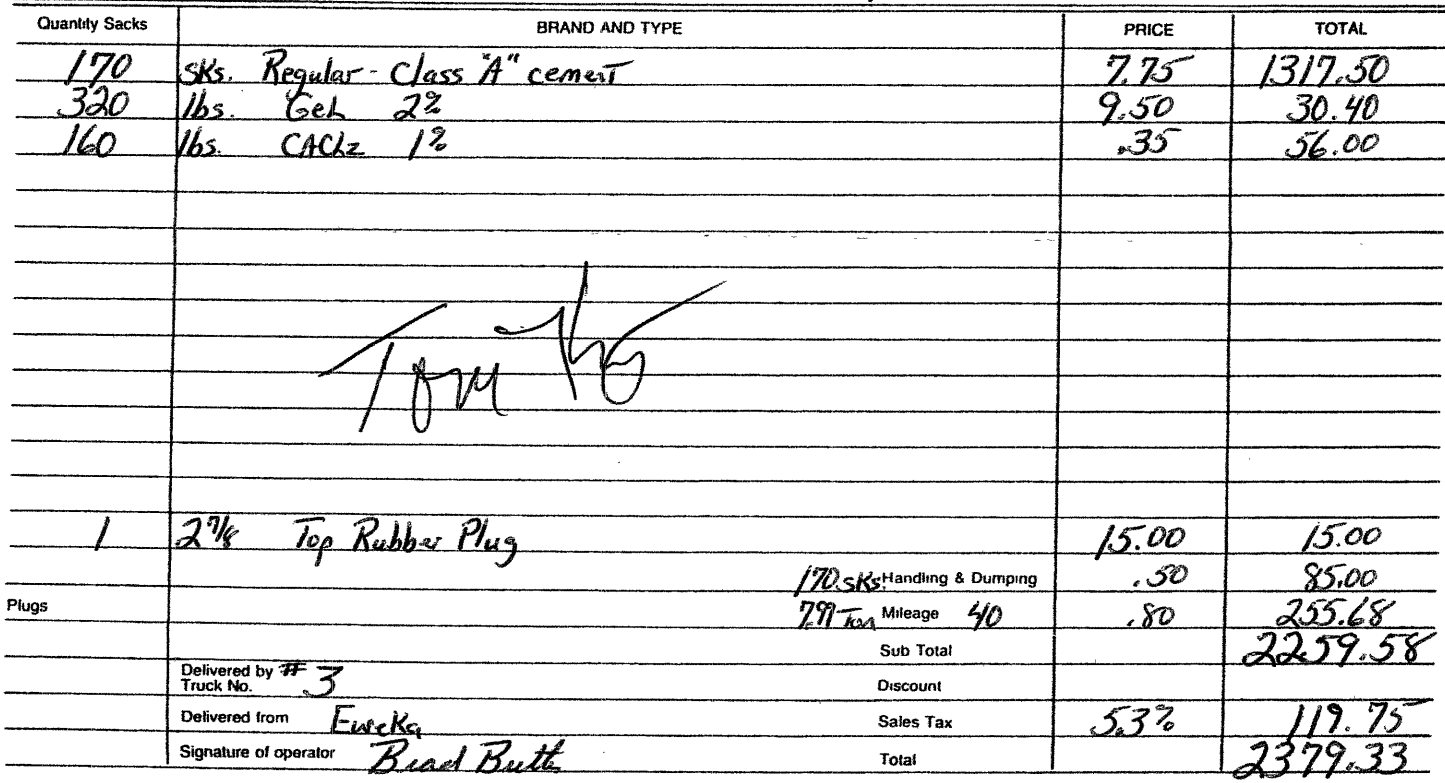 Quantity Sacks BRAND AND TYPE PRICE TOTAL
170 sks. Regular - Class "A" cement 7.75 1317.50
320 lbs. Gel 2% 9.50 30.40
160 lbs. CACL2 1% .35 56.00
1 2 7/8 Top Rubber Plug 15.00 15.00
170 sks Handling & Dumping .50 85.00
Plugs 7.99 Ton Mileage 40 .80 255.68
Sub Total 2259.58
Delivered by Truck No. # 3 Discount
Delivered from Eureka Sales Tax 5.3% 119.75
Signature of operator Brad Butler Total 2379.33